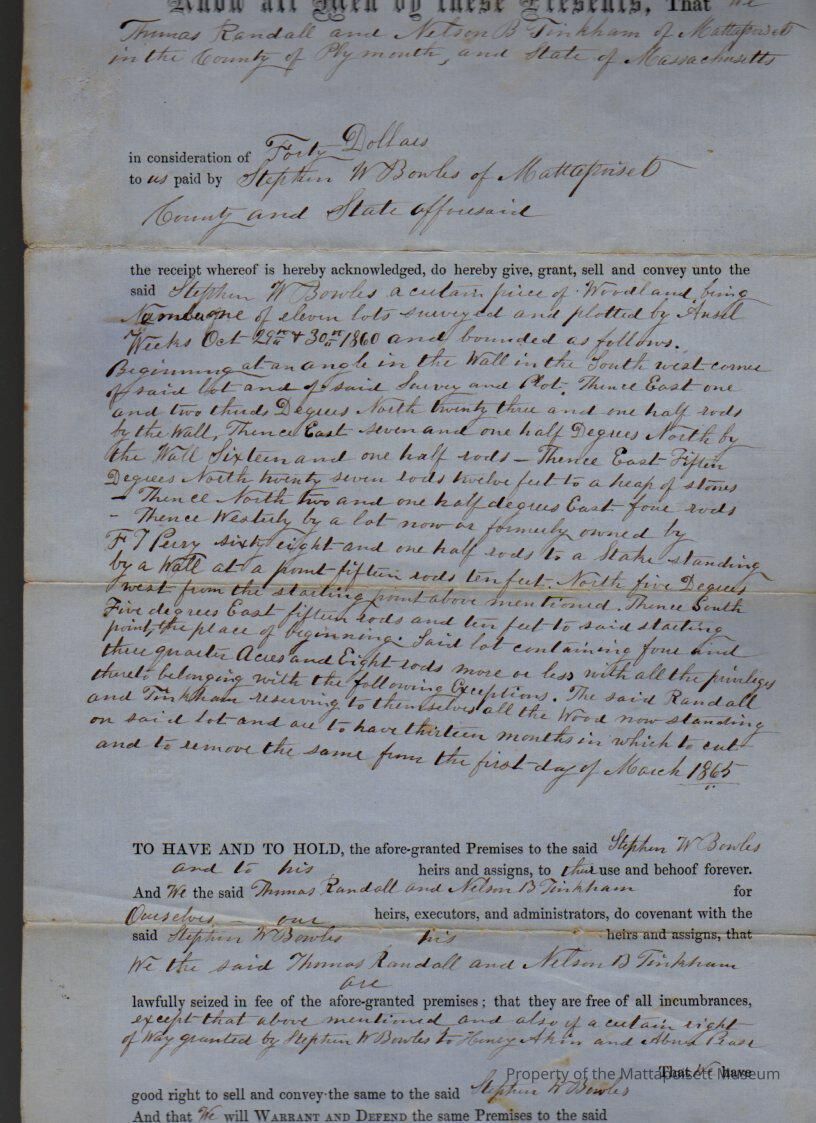 Know all Men by these Presents, That We
Thomas Randall and Nelson B Tinkham of Mattapoisett
in the County of Plymouth, and State of Massachusetts
in consideration of Forty Dollars
to us paid by Stephen W Bowles of Mattapoisett
County and State afforesaid
the receipt whereof is hereby acknowledged, do hereby give, grant, sell and convey unto the
said Stephen W Bowles a certain piece of Woodland being
Number one of eleven lots surveyed and plotted by Ansel
Weeks Oct 29th & 30th 1860 and bounded as follows.
Beginning at an angle in the Wall in the South west corner
of said lot and of said Survey and Plot. Thence East one
and two thirds Degrees North twenty three and one half rods
by the Wall, Thence East seven and one half Degrees North by
the Wall Sixteen and one half rods – Thence East Fifteen
Degrees North twenty seven rods twelve feet to a heap of stones
– Thence North two and one half degrees East four rods
- Thence Westerly by a lot now or formerly owned by
F T Perry sixty eight and one half rods to a Stake standing
by a Wall at a point fifteen rods ten feet North five Degrees
west from the starting point above mentioned. Thence South
Five degrees East fifteen rods and ten feet to said starting
point, the place of beginning. Said lot containing four and
three quarter Acres and Eight rods more or less with all the privileges
thereto belonging with the following Exceptions. The said Randall
and Tinkham reserving to themselves all the Wood now standing
on said lot and are to have thirteen months in which to cut
and to remove the same from the first day of March 1865
TO HAVE AND TO HOLD, the afore-granted Premises to the said Stephen W Bowles
and to his heirs and assigns, to their use and behoof forever.
And We the said Thomas Randall and Nelson B Tinkham for
Ourselves our heirs, executors, and administrators, do covenant with the
said Stephen W Bowles his heirs and assigns, that
We the said Thomas Randall and Nelson B Tinkham
are
lawfully seized in fee of the afore-granted premises; that they are free of all incumbrances,
except that above mentioned and also of a certain right
of Way granted by Stephen W Bowles to Henry Akin and Abner Pease
That We have
Property of the Mattapoisett Museum
good right to sell and convey the same to the said Stephen W Bowles
And that We will WARRANT AND DEFEND the same Premises to the said